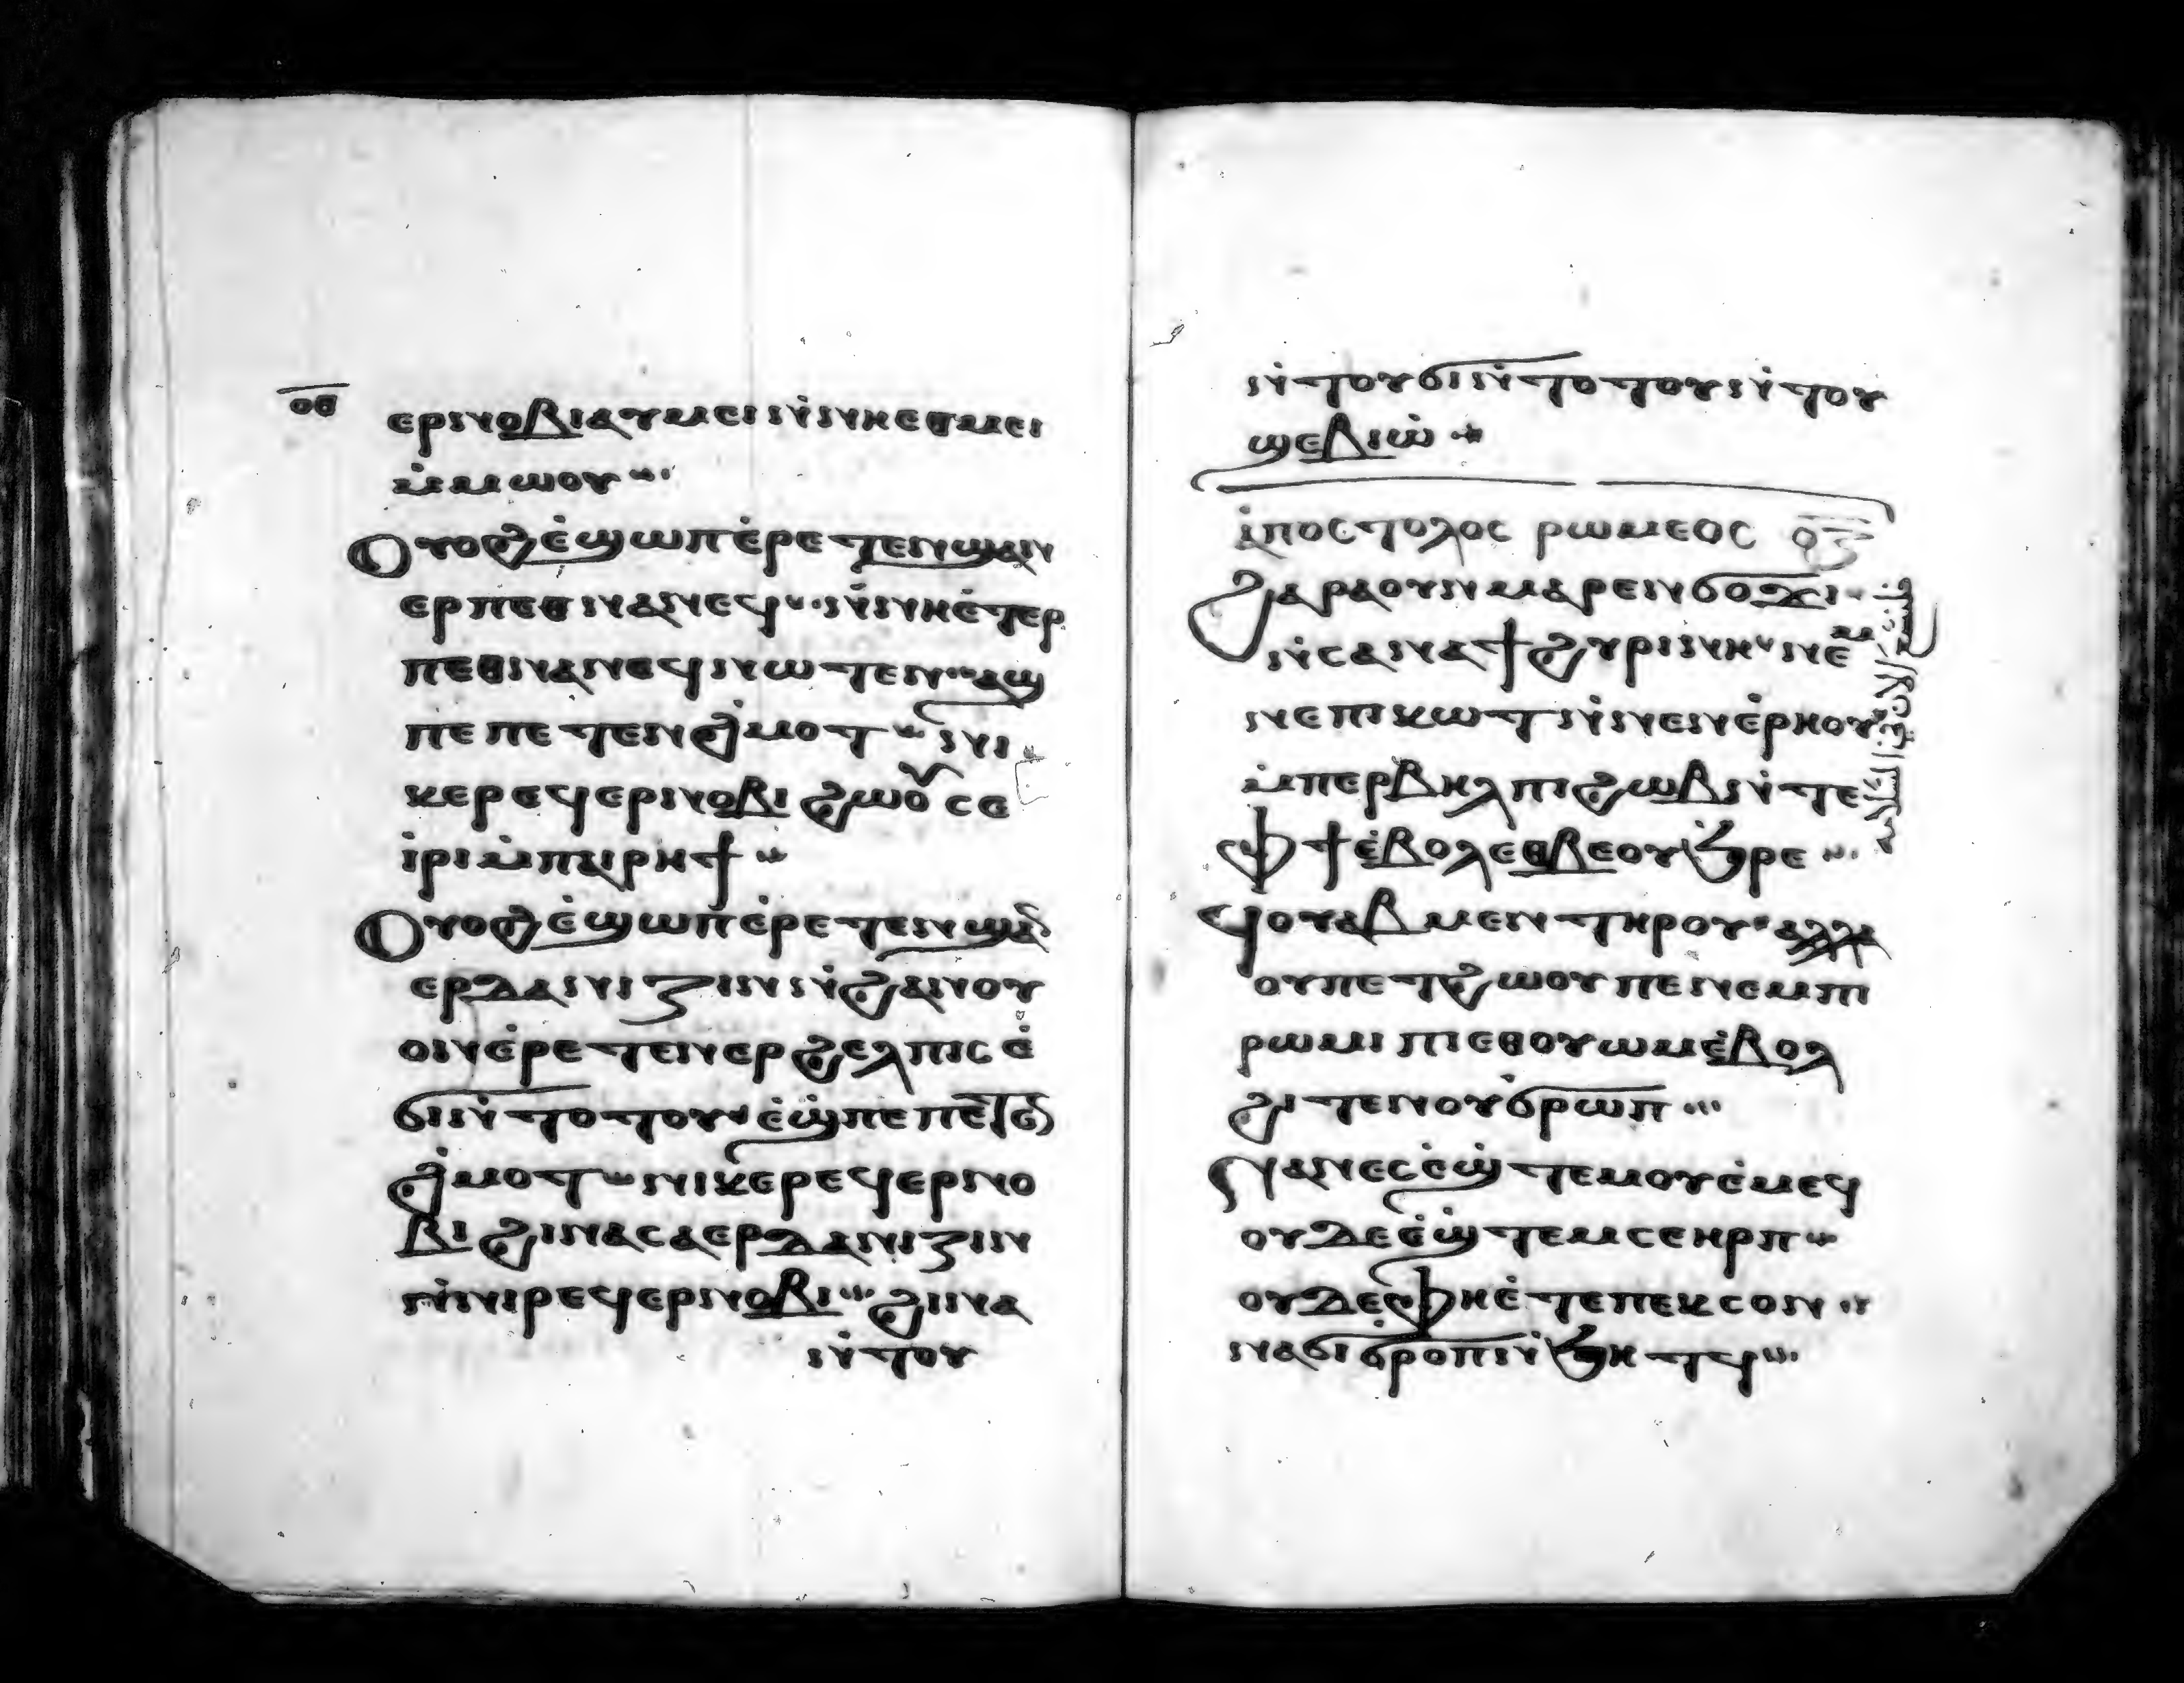 ⲟⲑ
ⲉⲣⲛⲟⲃⲓⲁⲩⲙⲉⲓⲛ̇ⲛⲏⲉⲑⲙⲉⲓ
ⲙ̇ⲙⲱⲟⲩ
Ⲟⲩⲟϩⲉ̇ϣⲱⲡⲉ̇ⲣⲉⲧⲉⲛϣⲁⲛ
ⲉⲣⲡⲉⲑⲛⲁⲛⲉϥⲛ̇ⲛⲏⲉ̇ⲧⲉⲣ
ⲡⲉⲑⲛⲁⲛⲉϥⲛⲱⲧⲉⲛⲁϣ
ⲡⲉ ⲡⲉⲧⲉⲛϩ̇ⲙⲟⲧ ⲛⲓ
ⲕⲉⲣⲉϥⲉⲣⲛⲟⲃⲓ ϩⲱⲟⲩ ⲥⲉ
ⲓ̇ⲣⲓⲙ̇ⲡⲁⲓⲣⲏϯ
Ⲟⲩⲟϩⲉ̇ϣⲱⲡⲉ̇ⲣⲉⲧⲉⲛϣⲁ̄
ⲉⲣⲇⲁⲛⲓⲍⲓⲛⲛ̇ϩⲁⲛⲟⲩ
ⲟⲛⲉ̇ⲣⲉⲧⲉⲛⲉⲣϩⲉⲗⲡⲓⲥ ⲉ̇
ϭⲓⲛ̇ⲧⲟⲧⲟⲩⲉ̇ϣ̇ⲡⲉ ⲡⲉⲧⲉ̄
ϩ̇ⲙⲟⲧ ⲛⲓⲕⲉⲣⲉϥⲉⲣⲛⲟ
ⲃⲓ ϩⲓⲛⲁⲥⲁⲉⲣⲇⲁⲛⲓⲍⲓⲛ
ⲛ̇ⲛⲓⲣⲉϥⲉⲣⲛⲟⲃⲓ ϩⲓⲛⲁ
ⲛ̇ⲧⲟⲩ
ⲛ̇ⲧⲟⲩϭⲓⲛ̇ⲧⲟⲧⲟⲩⲛ̇ⲧⲟⲩ
ϣⲉⲃⲓⲱ̇
ⲁ̇ⲡⲟⲥⲧⲟⲗⲟⲥ ⲣⲱⲙⲉⲟⲥ ⲟ̅ⲍ̅
ϩⲁⲣⲁⲟⲩⲛⲙⲁⲣⲉⲛϭⲟϫⲓ
ⲛ̇ⲥⲁⲛⲁϯϩⲩⲣⲓⲛⲏ ⲛⲉⲙ
ⲛⲉⲡⲓⲕⲱⲧⲛ̇ⲛⲉⲛⲉ̇ⲣⲏⲟⲩ
ⲙ̇ⲡⲉⲣⲃⲏⲗⲡⲓϩⲱⲃⲛ̇ⲧⲉ
ⲫϯⲉ̇ⲃⲟⲗⲉⲑⲃⲉⲟⲩϧ̇ⲣⲉ
ϥⲟⲩⲁⲃⲙⲉⲛⲧⲏⲣⲟⲩⲁⲗⲗⲁ
ⲟⲩⲡⲉⲧϩⲱⲟⲩⲡⲉⲛⲉⲙⲡⲓ
ⲣⲱⲙⲓ ⲡⲓⲉⲑⲟⲩⲱⲙⲉ̇ⲃⲟⲗ
ϩⲓⲧⲉⲛⲟⲩϭ̇ⲣⲱⲡ
ⲛⲁⲛⲉⲥⲉ̇ϣ̇ⲧⲉⲙⲟⲩⲉ̇ⲙⲉϥ
ⲟⲩⲇⲉⲉ̇ϣ̇ⲧⲉⲙⲥⲉⲏⲣⲡ
ⲟⲩⲇⲉⲫⲏⲉ̇ⲧⲉⲡⲉⲕⲥⲟⲛ
ⲛⲁϭⲓϭⲣⲟⲡⲛ̇ϧⲏⲧϥ